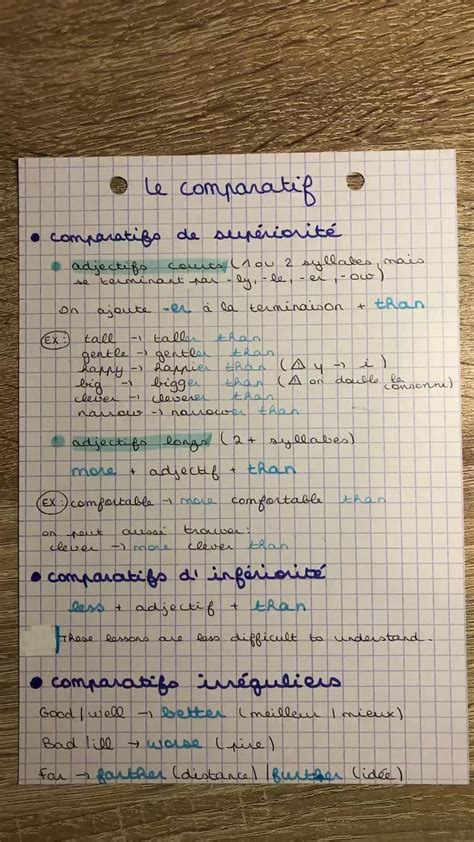 Le comparatif
• comparatifs de supériorité
• adjectifs courts (1 ou 2 syllabes, mais
se terminant par -ly, -le, -er, -ow)
On ajoute -er à la terminaison + than
EX: tall → taller than
gentle → gentler than
happy → happier than (⚠ y → i)
big → bigger than (⚠ on double la consonne)
clever → cleverer than
narrow → narrower than
• adjectifs longs (2+ syllabes)
more + adjectif + than
EX: comfortable → more comfortable than
on peut aussi trouver:
clever → more clever than
• comparatifs d'infériorité
less + adjectif + than
These lessons are less difficult to understand.
• comparatifs irréguliers
Good/well → better (meilleur/mieux)
Bad/ill → worse (pire)
Far → farther (distance) / further (idée)